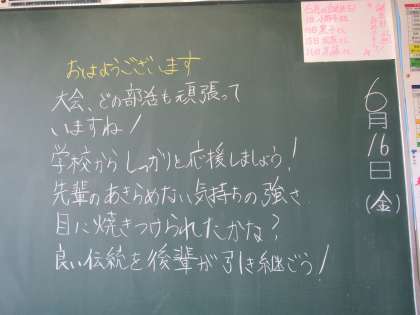 おはようございます
大会、どの部活も頑張って
いますね!
学校からしっかりと応援しましょう!
先輩のあきらめない気持ちの強さ
目に焼きつけられたかな?
良い伝統を後輩が引き継ごう!
6月16日(金)